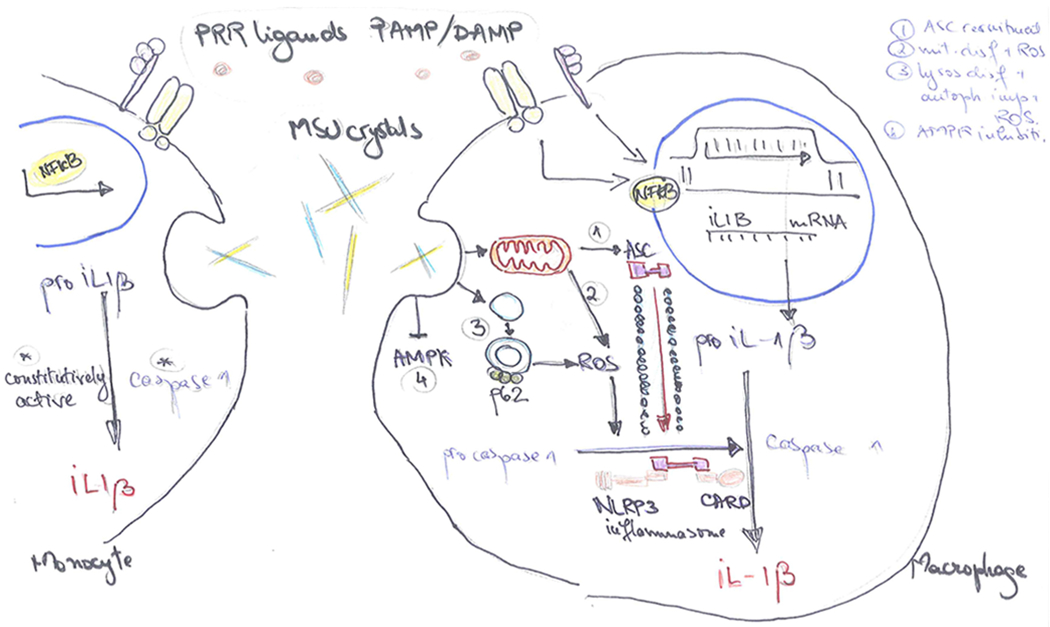 PRR ligands PAMP/DAMP
① ASC recruitment
② mit. disf + ROS
③ lysos disf +
autoph imp +
ROS.
AMPK inhibiti.
MSU crystals
NFkB
pro iL1β
* constitutively
active
** Caspase 1
iL1β
Monocyte
NFkB
iL1B mRNA
1
ASC
2
3
AMPK
4
p62
ROS
pro iL-1β
pro caspase 1
Caspase 1
NLRP3
inflammasome
CARD
iL-1β
Macrophage